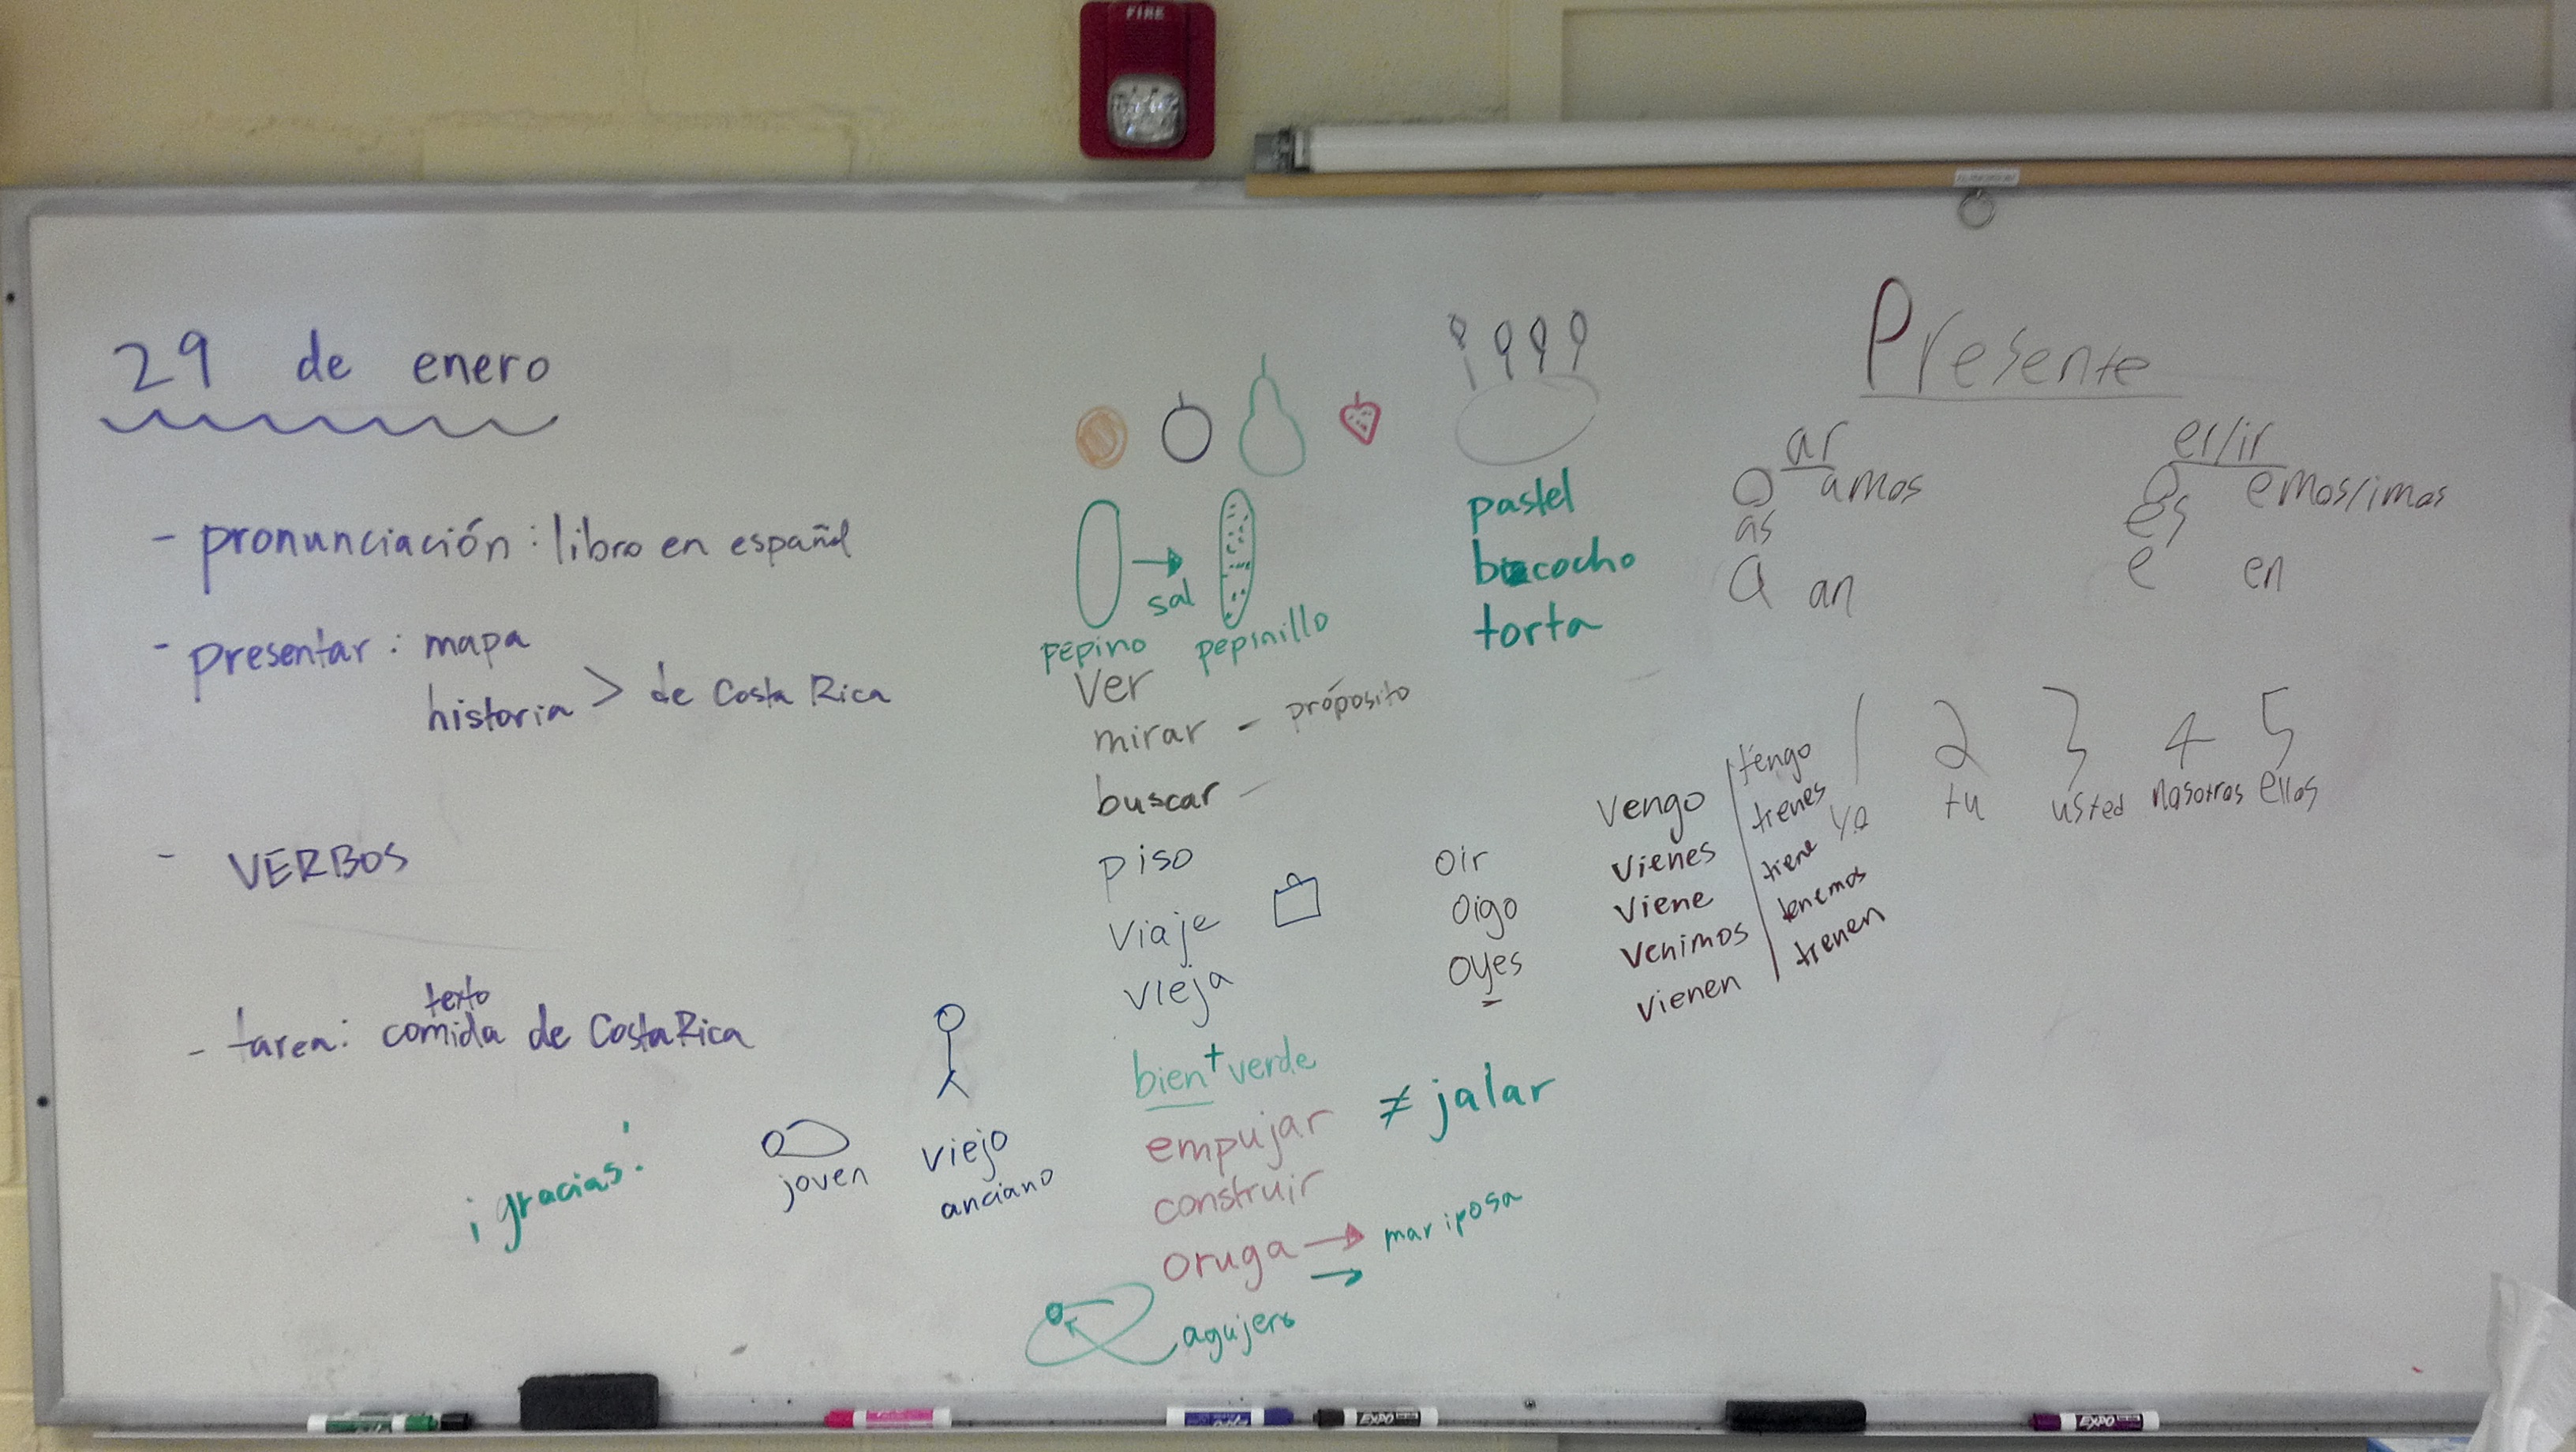 FIRE
29 de enero
- pronunciación: libro en español
- presentar: mapa
historia > de Costa Rica
- VERBOS
texto
- tarea: comida de Costa Rica
¡gracias!
joven
viejo
anciano
sal
pepino pepinillo
ver
mirar - próposito
buscar -
piso
viaje
vieja
bien + verde
empujar ≠ jalar
construir
oruga → mariposa
agujero
pastel
bizcocho
torta
oir
oigo
oyes
vengo | tengo
vienes | tienes
viene | tiene
venimos | tenemos
vienen | tienen
Presente
ar
o amos
as
a an
er/ir
o emos/imos
es
e en
1 2 3 4 5
yo tu usted nosotros ellos
EXPO
EXPO